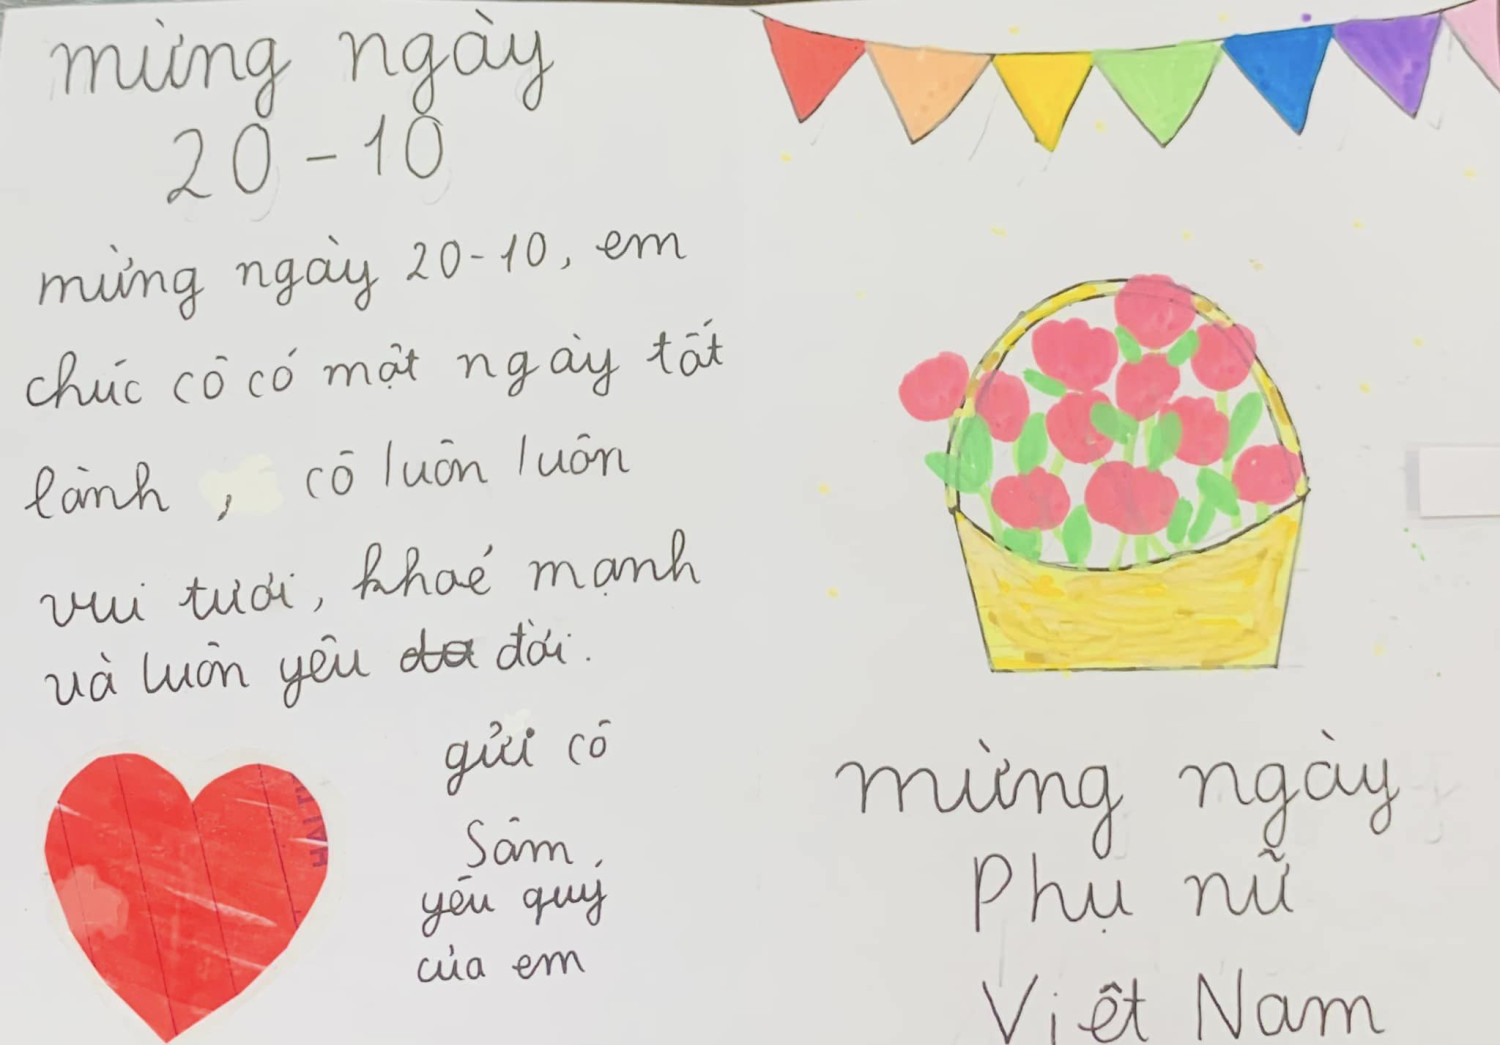 mừng ngày
20-10
mừng ngày 20-10, em
chúc cô có một ngày tốt
lành, cô luôn luôn
vui tươi, khoẻ mạnh
và luôn yêu đời.
gửi cô
Sâm,
yêu quý
của em
mừng ngày
Phụ nữ
Việt Nam